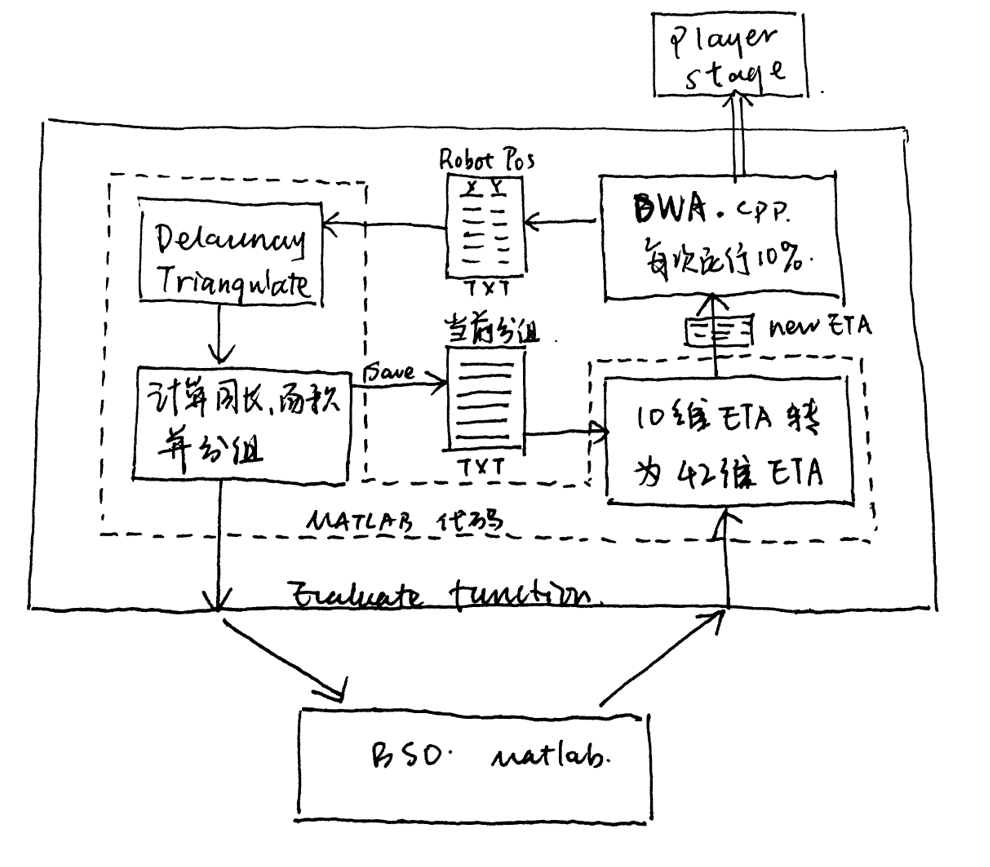 Player
stage
Robot Pos
X Y
TXT
BWA.cpp.
每次运行10%.
Delaunay
Triangulate
new ETA
当前分组
TXT
Save
计算周长、面积
并分组
10维ETA转
为42维ETA
MATLAB 代码
Evaluate function.
BSO. matlab.